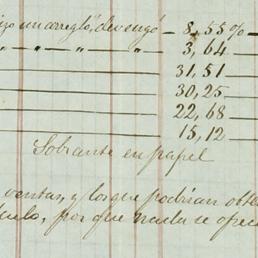 izo un arreglo, devengó — 8,55%
" — " — " — " — 3,64
31,51
30,25
22,68
15,12
Sobrante en papel
ventas, y los que podrian obte
uelo, por que nada se ofrec